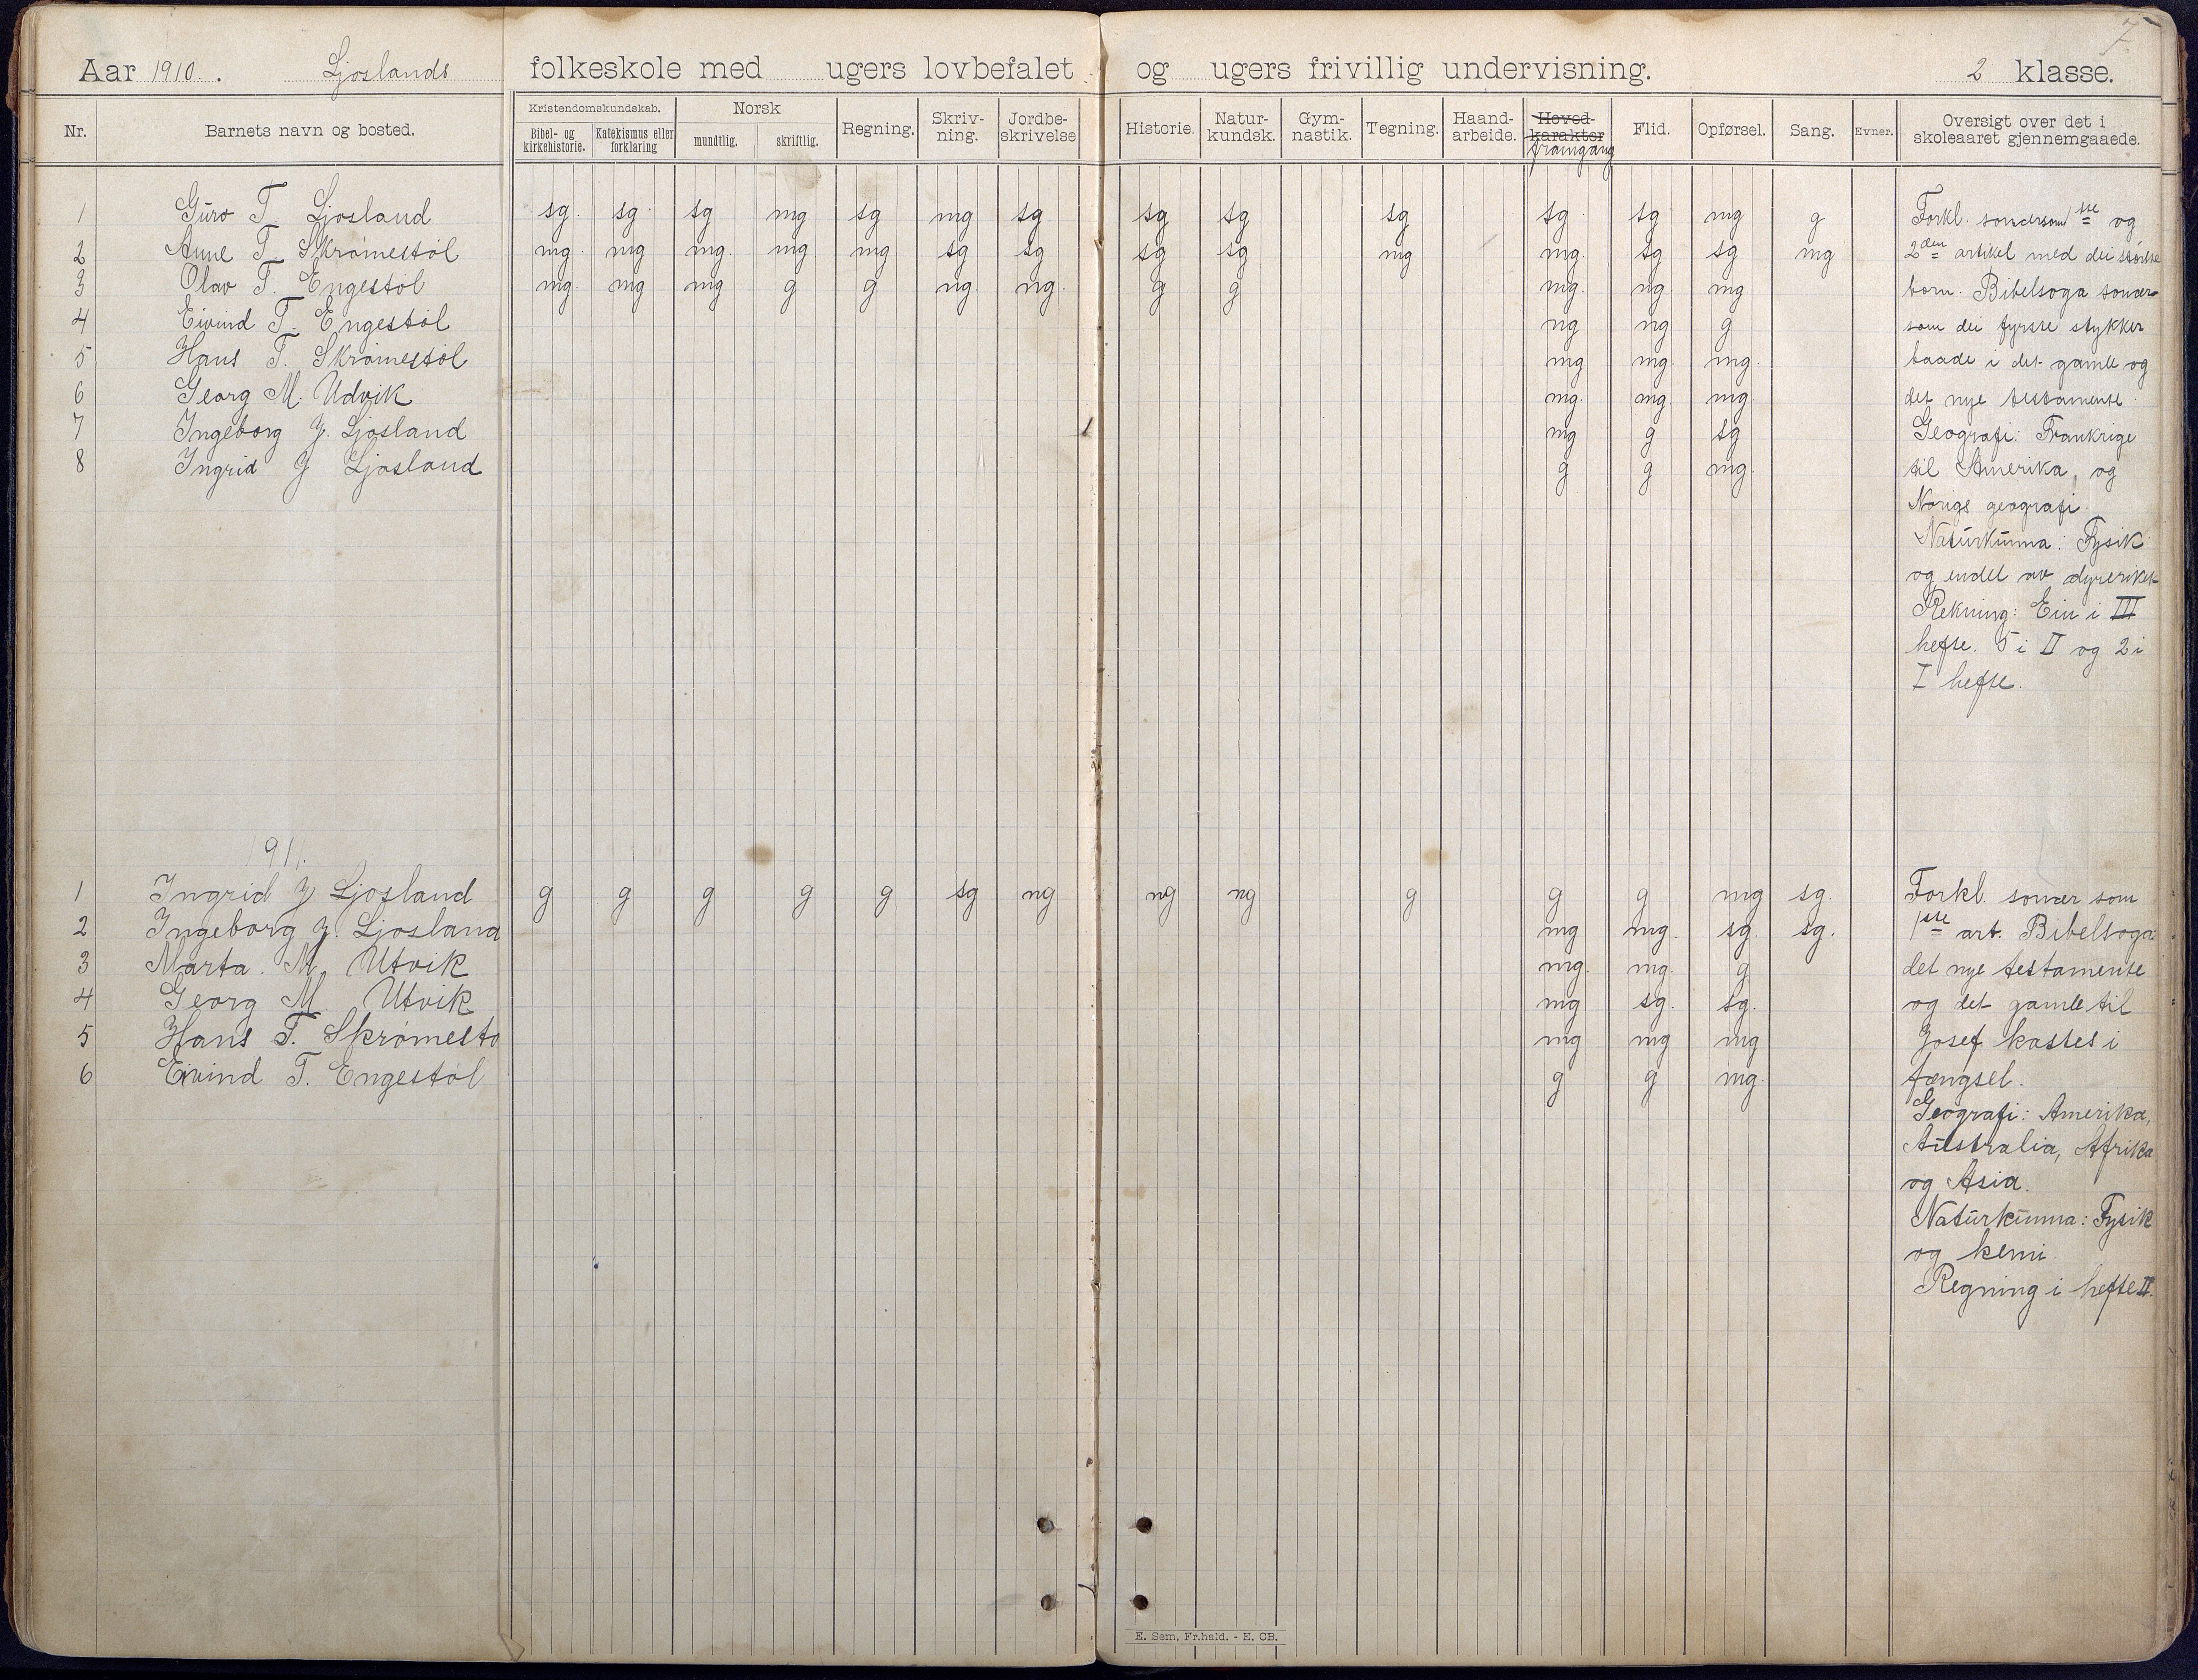 7.
Aar 1910. Ljoslands folkeskole med ugers lovbefalet og ugers frivillig undervisning. 2 klasse.
Nr. Barnets navn og bosted. Kristendomskundskab. Bibel- og kirkehistorie. Katekismus eller forklaring Norsk mundtlig. skriftlig. Regning. Skriv-ning. Jordbe-skrivelse Historie. Natur-kundsk. Gym-nastik. Tegning. Haand-arbeide. Hoved-karakter framgang Flid. Opførsel. Sang. Evner. Oversigt over det i skoleaaret gjennemgaaede.
1 Guro T. Ljosland sg. sg. sg mg sg mg sg sg sg sg sg. sg mg g
2 Anne T. Skrømestøl mg mg mg. mg mg sg sg sg sg mg mg. sg sg mg
3 Olav T. Engestøl mg. mg mg g g ng. ng. g g mg. ng. mg
4 Eivind T. Engestøl ng ng g
5 Hans T. Skrømestøl mg mg. mg.
6 Georg M. Udvik mg. mg. mg
7 Ingeborg J. Ljosland mg g sg
8 Ingrid J Ljosland g g mg.
Forkl. sonærsom 1ste og
2den artikel med dei største
born. Bibelsoga sonær
som dei fyrste stykker
baade i det gamle og
det nye testamente.
Geografi: Frankrige
til Amerika, og
Norigs geografi.
Naturkunna: Fysik
og endel av dyreriket
Rekning: Ein i III
hefte. 5 i II og 2 i
I hefte.
1911.
1 Ingrid J Ljosland g g g g g sg ng ng ng g g g mg sg.
2 Ingeborg J. Ljosland mg mg. sg. sg.
3 Marta. M. Utvik mg. mg. g
4 Georg M. Utvik mg sg. sg.
5 Hans T. Skrømestø mg mg mg
6 Eivind T. Engestøl g g mg.
Forkl. sonær som
1ste art. Bibelsoga:
det nye testamente
og det gamle til
Josef kastes i
fængsel.
Geografi: Amerika,
Australia, Afrika
og Asia.
Naturkunna: Fysik
og kemi
Regning i hefte II.
E. Sem, Fr.hald. - E. CB.